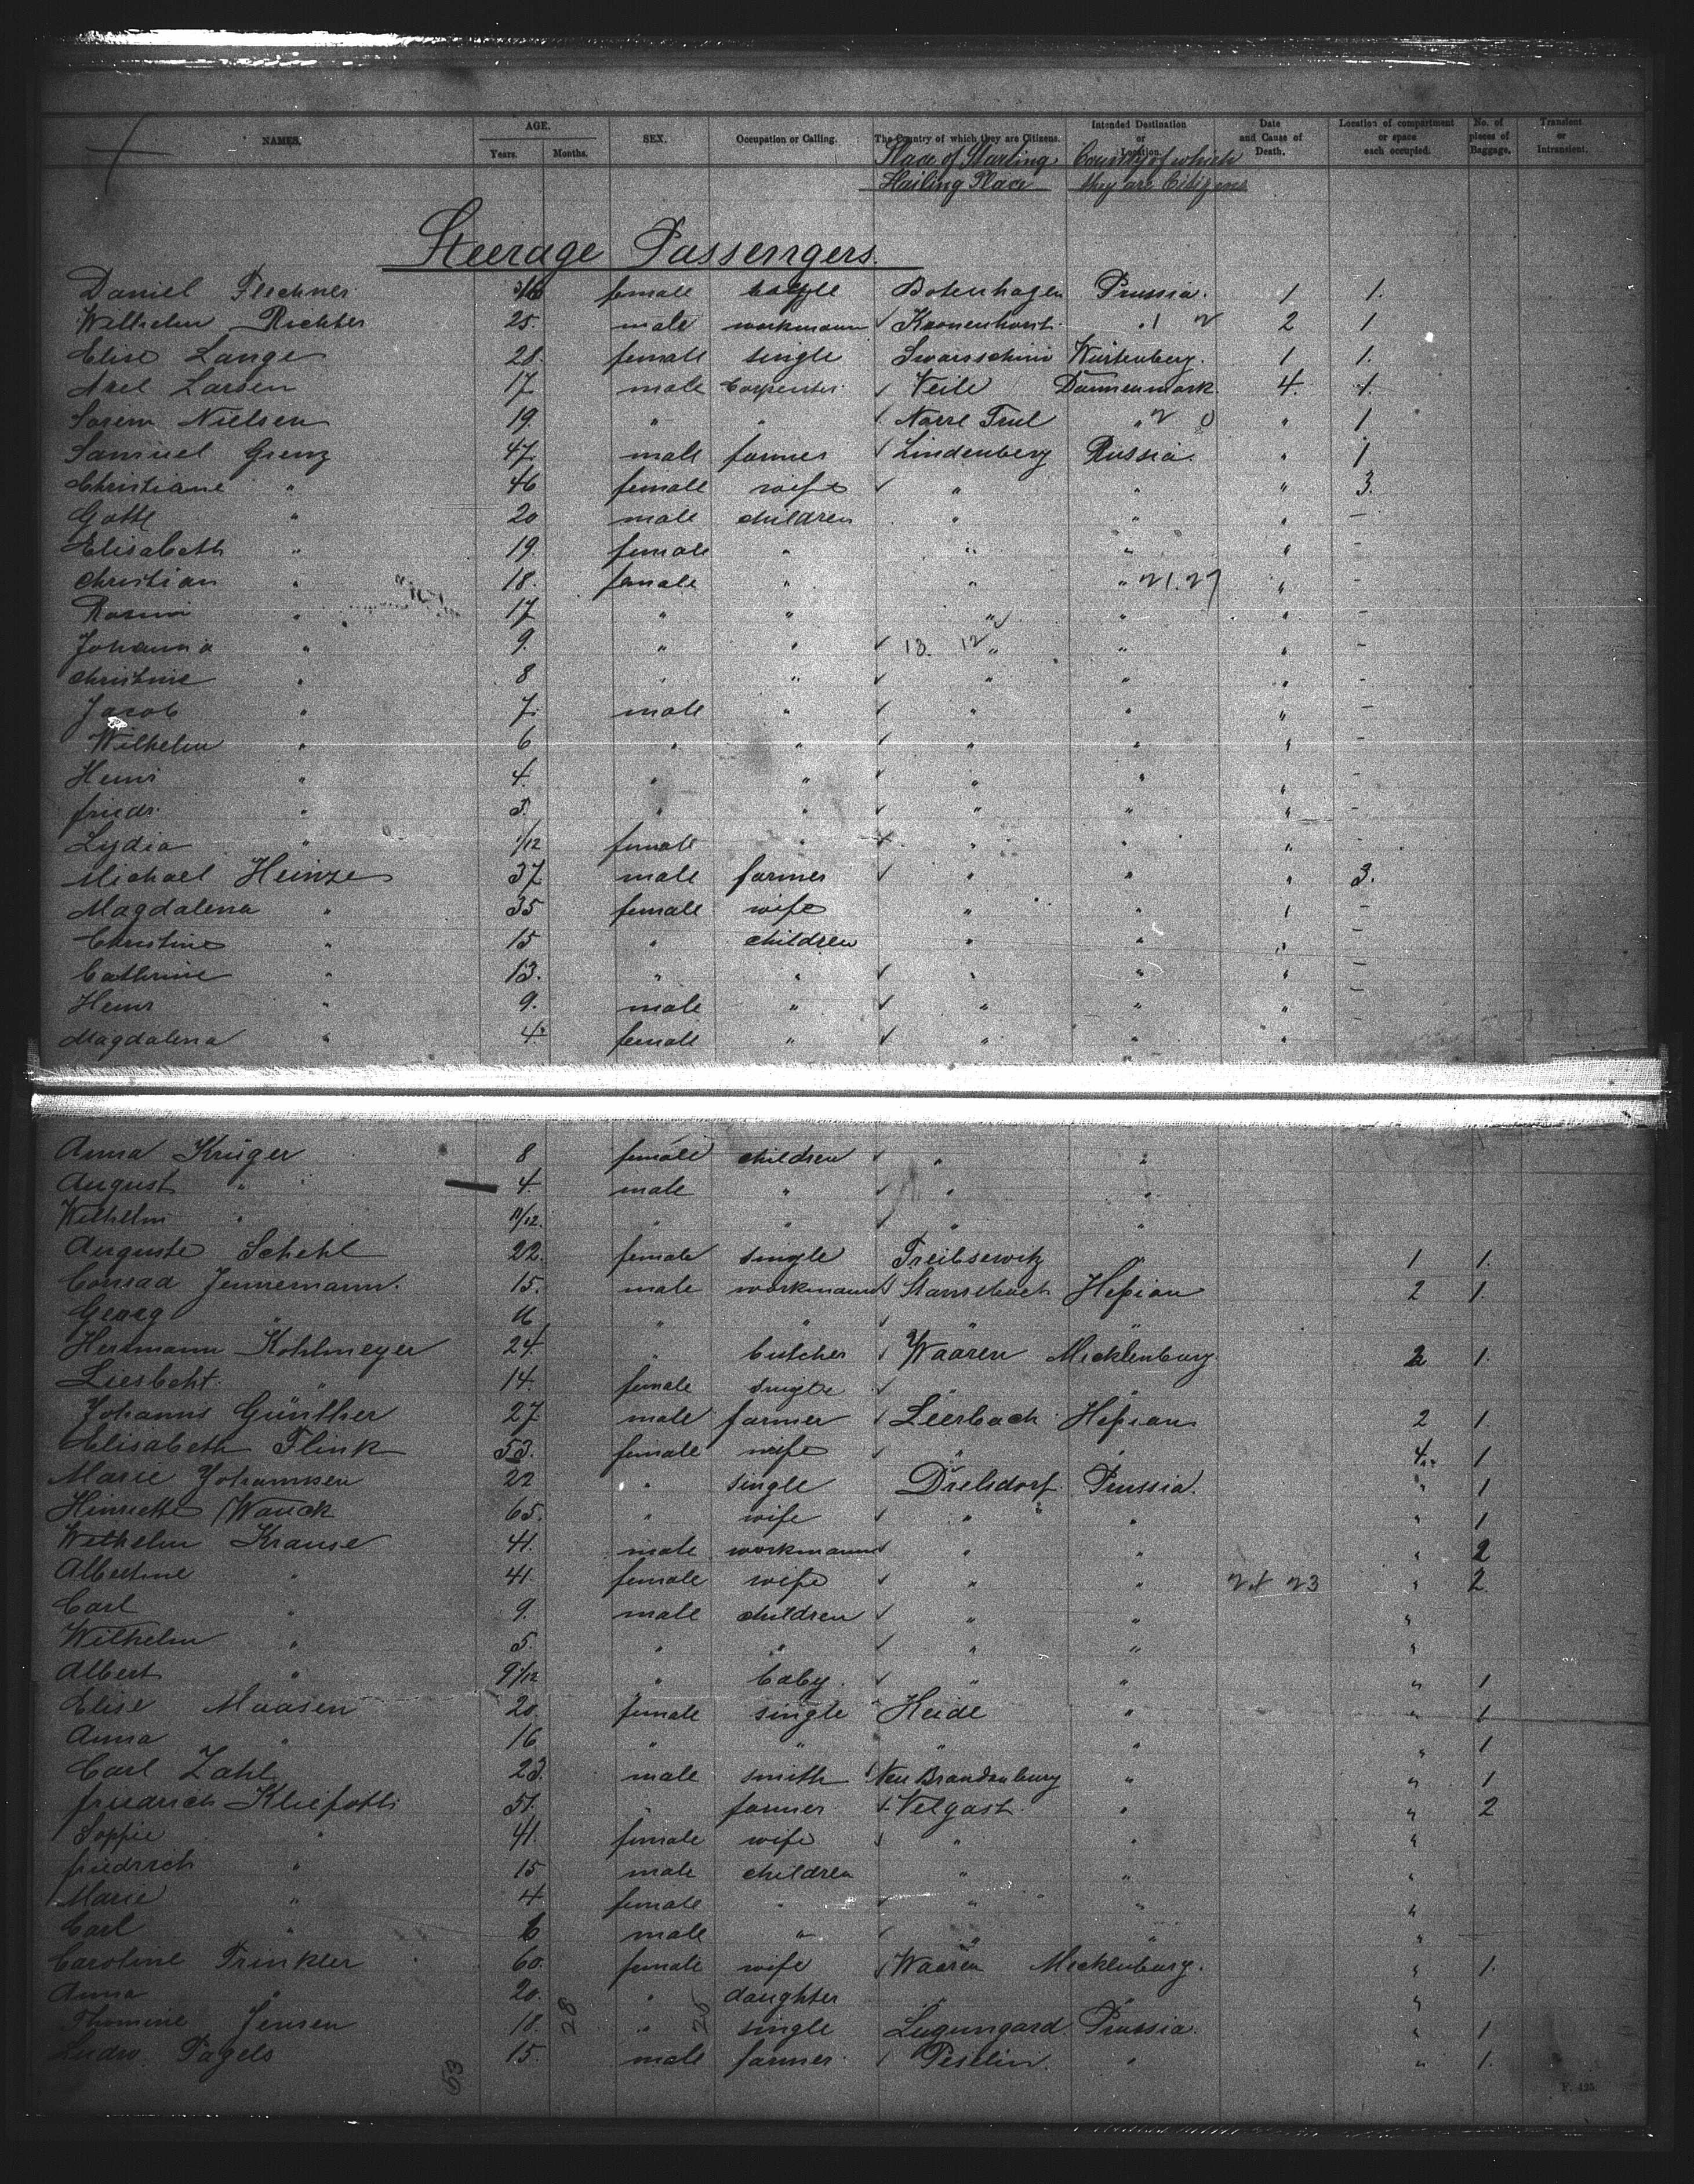 NAMES. AGE. Years. Months. SEX. Occupation or Calling. The Country of which they are Citizens. Intended Destination or Location. Date and Cause of Death. Location of compartment or space each occupied. No. of pieces of Baggage. Transient or Intransient.
Place of Starting Country of which
Hailing Place they are Citizens
Steerage Passengers.
Daniel female Botenhagen Prussia. 1 1.
Wilhelm Richter 25. male workmann 2 1
Elise Lange 28. female single Würtenberg. 1 1.
Axel Larsen 17 male Carpenter Veile Dannenmark 4. 1.
Sosern Nielsen 19. " " Norre " " 1
Samuel Grenz 47 male farmer Lindenberg Russia. " 1
Christiane " 46 female wife " " " 3.
Gottl " 20 male children " " " -
Elisabeth " 19. female " " " " -
Christian " 18. female " " " 21.27 " -
Rosina " 17 " " " " " -
Johanna " 9. " " 13. 12 " " " -
Christine " 8 " " " " " -
Jacob " 7. male " " " " -
Wilhelm " 6 " " " " " -
Heinr " 4. " " " " " -
friedr. " 3. " " " " " -
Lydia " 1/12 female " " " " -
Michael Heinze 37 male farmer " " " 3.
Magdalena " 35 female wife " " " -
Christine " 15 " children " " " -
Cathrine " 13. " " " " " -
Heinr " 9. male " " " " -
Magdalena " 4. female " " " "
Anna Krüger 8 female children " "
August " 4. male " " "
Wilhelm " 11/12. " " " "
Auguste Schehl 22. female single Treibsewitz " 1 1.
Conrad Jennemann. 15. male workmann Hessian 2 1.
Georg " " " " "
Hermann Kohlmeyer 24. " butcher Waaren Mecklenburg. 2 1.
Liesbeht. " 14. female single " "
Johanns Günther 27 male farmer Leerbach Hessian 2 1.
Elisabeth Flink 53. female wife " " 4. 1
Marie Johannsen 22 " single Drelsdorf. Prussia. " 1
Hinriette Wauck 65. " wife " " " 1
Wilhelm Krause 41. male workmann " " " 2
Albertine " 41 female wife " " 24 23 " 2.
Carl " 9. male children " " "
Wilhelm " 5. " " " " "
Albert " 9/12 " baby. " " " 1
Elise Maasen 20. female single Heide " " 1
Anna " 16 " " " " " 1
Carl Zahl 23. male smith Neu Brandenburg " " 1
friedrich Kliefoth 51. " farmer. Velgast. " " 2
Sopfie " 41. female wife " " "
friedrich " 15 male children " " "
Marie " 4 female " " " "
Carl " 6 male " " " "
Caroline Trinkler 60. female wife Waaren Mecklenburg. " 1.
Anna " 20. " daughter " " "
Thomine Jensen 18. " single Lugumgard. Prussia. " 1
Ludw. Pagels 15. male farmer. Peselin. " " 1.
28 26
53
F. 125.